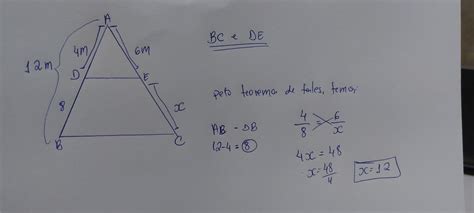 A
4m
6m
12m
D
E
8
x
B
C
BC e DE
pelo teorema de tales, temos
AB - DB
12-4=8
4/8 = 6/x
4x = 48
x = 48/4
x=12